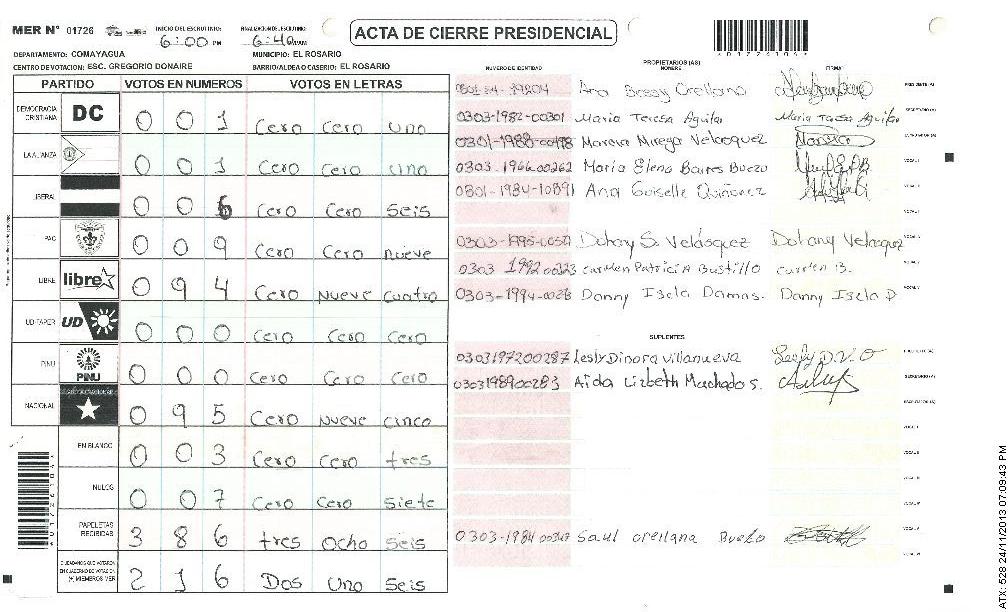 MER N° 01726
INICIO DEL ESCRUTINIO: 6:00 PM
FINALIZACION DE ESCRUTINIO: 6:40
ACTA DE CIERRE PRESIDENCIAL
DEPARTAMENTO: COMAYAGUA
MUNICIPIO: EL ROSARIO
CENTRO DE VOTACION: ESC. GREGORIO DONAIRE
BARRIO/ALDEA O CASERIO: EL ROSARIO
PARTIDO VOTOS EN NUMEROS VOTOS EN LETRAS
DEMOCRACIA CRISTIANA DC 0 0 1 Cero Cero uno
LA ALIANZA 0 0 1 Cero Cero uno
LIBERAL 0 0 6 Cero Cero Seis
PAC 0 0 9 Cero Cero nueve
LIBRE libre 0 9 4 Cero Nueve cuatro
UD-FAPER UD 0 0 0 Cero Cero Cero
PINU PINU 0 0 0 Cero Cero Cero
NACIONAL 0 9 5 Cero Nueve cinco
EN BLANCO 0 0 3 Cero Cero tres
NULOS 0 0 7 Cero Cero Siete
PAPELETAS RECIBIDAS 3 8 6 tres Ocho Seis
CIUDADANOS QUE VOTARON EN CUADERNO DE VOTACION (+) MIEMBROS MER 2 1 6 Dos Uno Seis
NUMERO DE IDENTIDAD
PROPIETARIOS (AS)
NOMBRE
FIRMA
Ana Bessy Orellano PRESIDENTE (A)
0303-1982-00301 Maria Teresa Aguilar Maria Teresa Aguilar SECRETARIO (A)
0301-1988-00498 Mareya Velasquez ESCRUTADOR (A)
0303-1966-00262 Maria Elena Baires Buezo VOCAL I
0801-1984-10891 Ana Goiselle Quiñonez
Velásquez Dohany Velasquez
Carmen Patricia Bustillo Carmen B.
Danny Isela Damas. Danny Isela D
SUPLENTES
0303197200287 Lesly Dinora Villanueva
0303198900283 Aida Lizbeth Machado S. SECRETARIO (A)
ESCRUTADOR (A)
0303-1984-00347 Saul orellana Buezo
ATX: 528 24/11/2013 07:09:43 PM